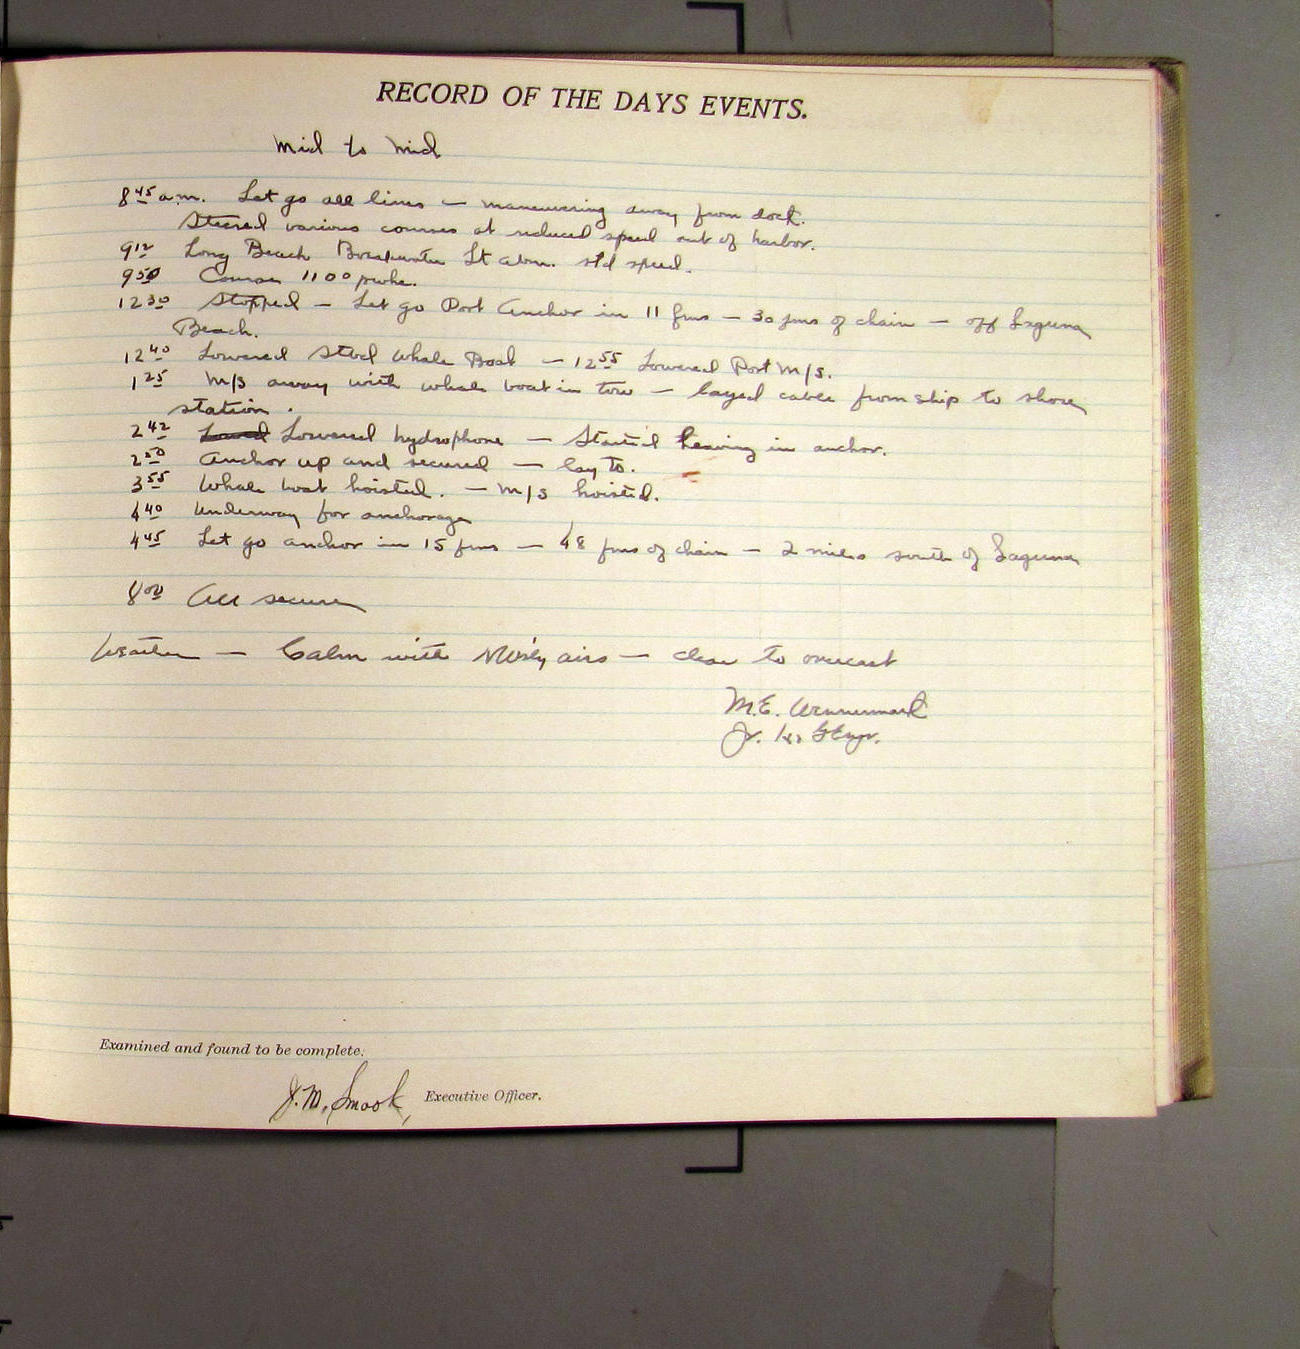 RECORD OF THE DAYS EVENTS.
Mid to Mid
8 45 a.m. Let go all lines — maneuvering away from dock.
Steered various courses at reduced speed out of harbor.
9 12 Long Beach Breakwater Lt abm. std speed.
9 50 Course 110°
12 30 Stopped — Let go Port Anchor in 11 fms — 30 fms of chain — off Laguna
Beach.
12 40 Lowered Stbd Whale Boat — 12 55 Lowered Port M/S.
1 25 M/S away with whale boat in tow — layed cable from ship to shore
station.
2 42 Lowered hydrophone — Started heaving in anchor.
2 50 Anchor up and secured — lay to.
3 55 Whale boat hoisted. — M/S hoisted.
4 40 Underway for anchorage
4 45 Let go anchor in 15 fms — 48 fms of chain — 2 miles south of Laguna
8 00 All secure
Weather — Calm with airs — clear to overcast
M.E. Wennermark
Jr.
Examined and found to be complete.
J.M. Smook, Executive Officer.